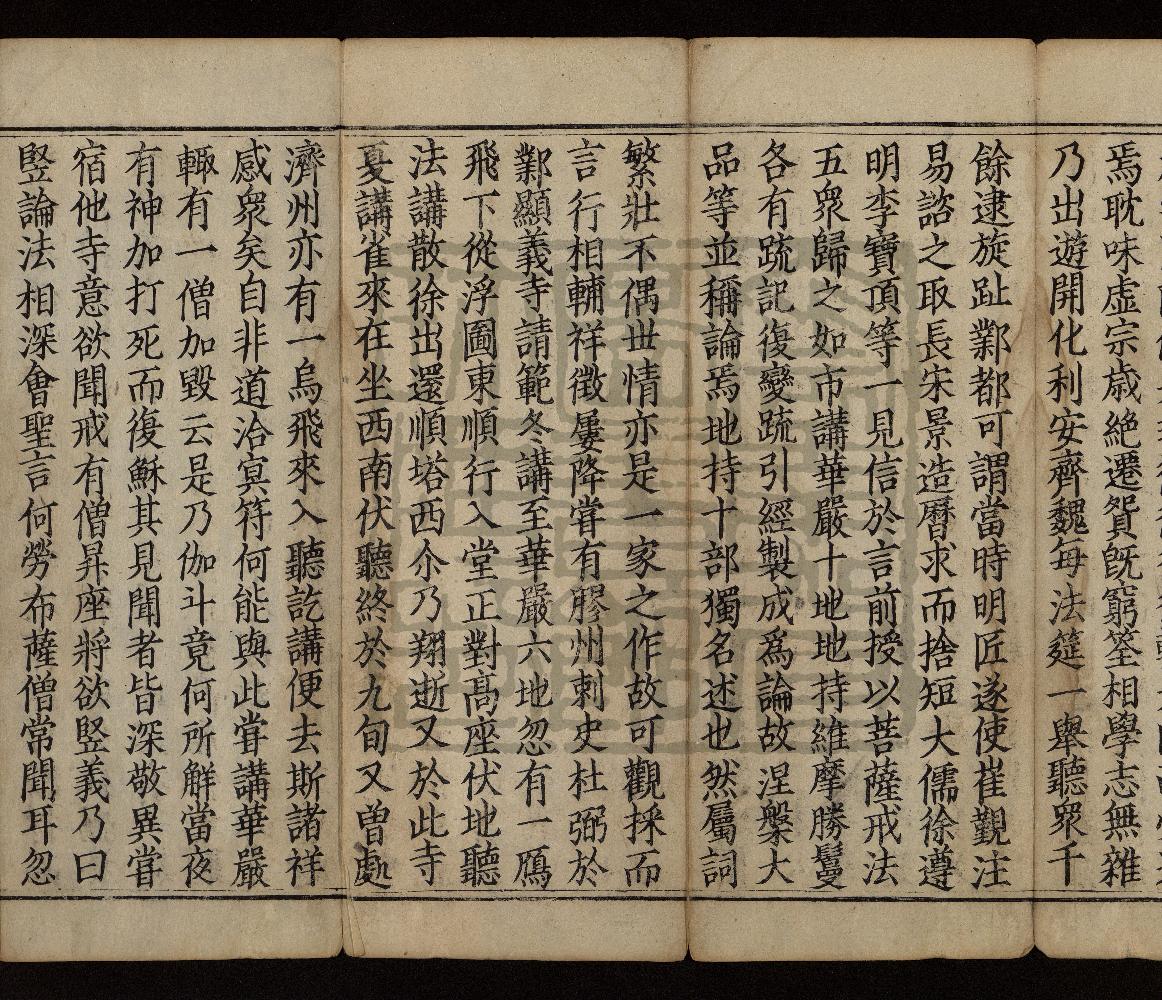 焉耽味虛宗歲絶遷貿旣窮筌相學志無雜
乃出遊開化利安齊魏每法筵一舉聽衆千
餘逮旋趾鄴都可謂當時明匠遂使崔覲注
易諮之取長宋景造曆求而捨短大儒徐遵
明李寶頂等一見信於言前授以菩薩戒法
五衆歸之如市講華嚴十地地持維摩勝鬘
各有疏記復變疏引經製成爲論故涅槃大
品等並稱論焉地持十部獨名述也然屬詞
繁壯不偶世情亦是一家之作故可觀採而
言行相輔祥徵屢降甞有膠州刺史杜弼於
鄴顯義寺請範冬講至華嚴六地忽有一鴈
飛下從浮圖東順行入堂正對高座伏地聽
法講散徐出還順塔西尒乃翔逝又於此寺
夏講雀來在坐西南伏聽終於九旬又曾處
濟州亦有一烏飛來入聽訖講便去斯諸祥
感衆矣自非道洽冥符何能與此甞講華嚴
輙有一僧加毀云是乃伽斗竟何所解當夜
有神加打死而復穌其見聞者皆深敬異甞
宿他寺意欲聞戒有僧昇座將欲竪義乃曰
竪論法相深會聖言何勞布薩僧常聞耳忽